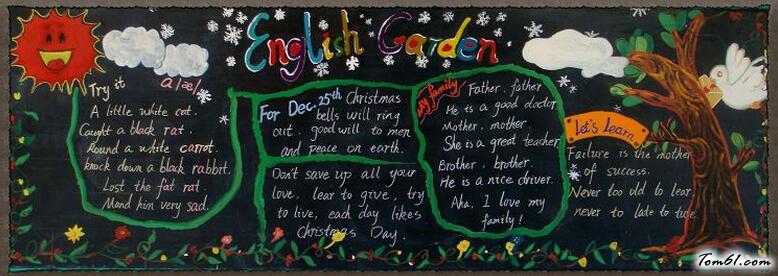 English Garden
Try it
a/æ/
A little white cat.
Caught a black rat.
Round a white carrot.
knock down a black rabbit.
Lost the fat rat.
Mand him very sad.
For Dec. 25th Christmas
bells will ring
out. good will to men
and peace on earth.
Don't save up all your
love, lear to give, try
to live, each day likes
Christmas Day.
My family
Father, father
He is a good doctor
Mother, mother.
She is a great teacher
Brother, brother.
He is a nice driver.
Aha, I love my
family!
Let's Learn
Failure is the mother
of success.
Never too old to lear,
never to late to
Tom61.com